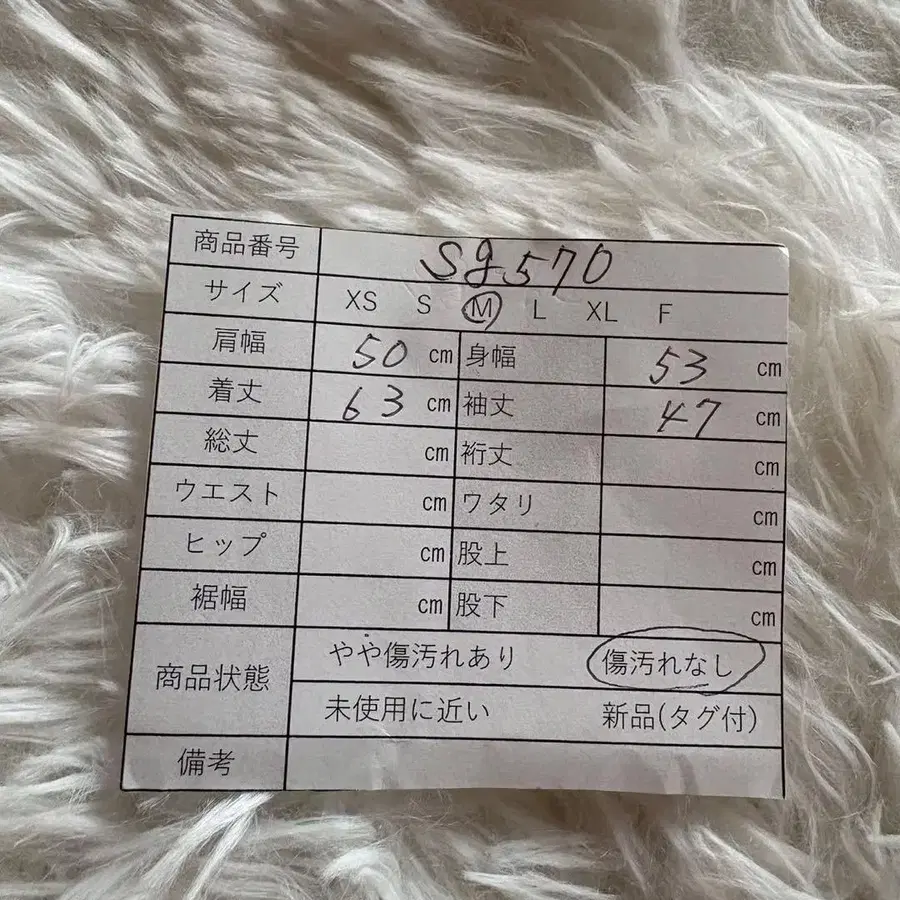 商品番号 Sg570
サイズ XS S M L XL F
肩幅 50 cm 身幅 53 cm
着丈 63 cm 袖丈 47 cm
総丈 cm 裄丈 cm
ウエスト cm ワタリ cm
ヒップ cm 股上 cm
裾幅 cm 股下 cm
商品状態 やや傷汚れあり 傷汚れなし
未使用に近い 新品(タグ付)
備考